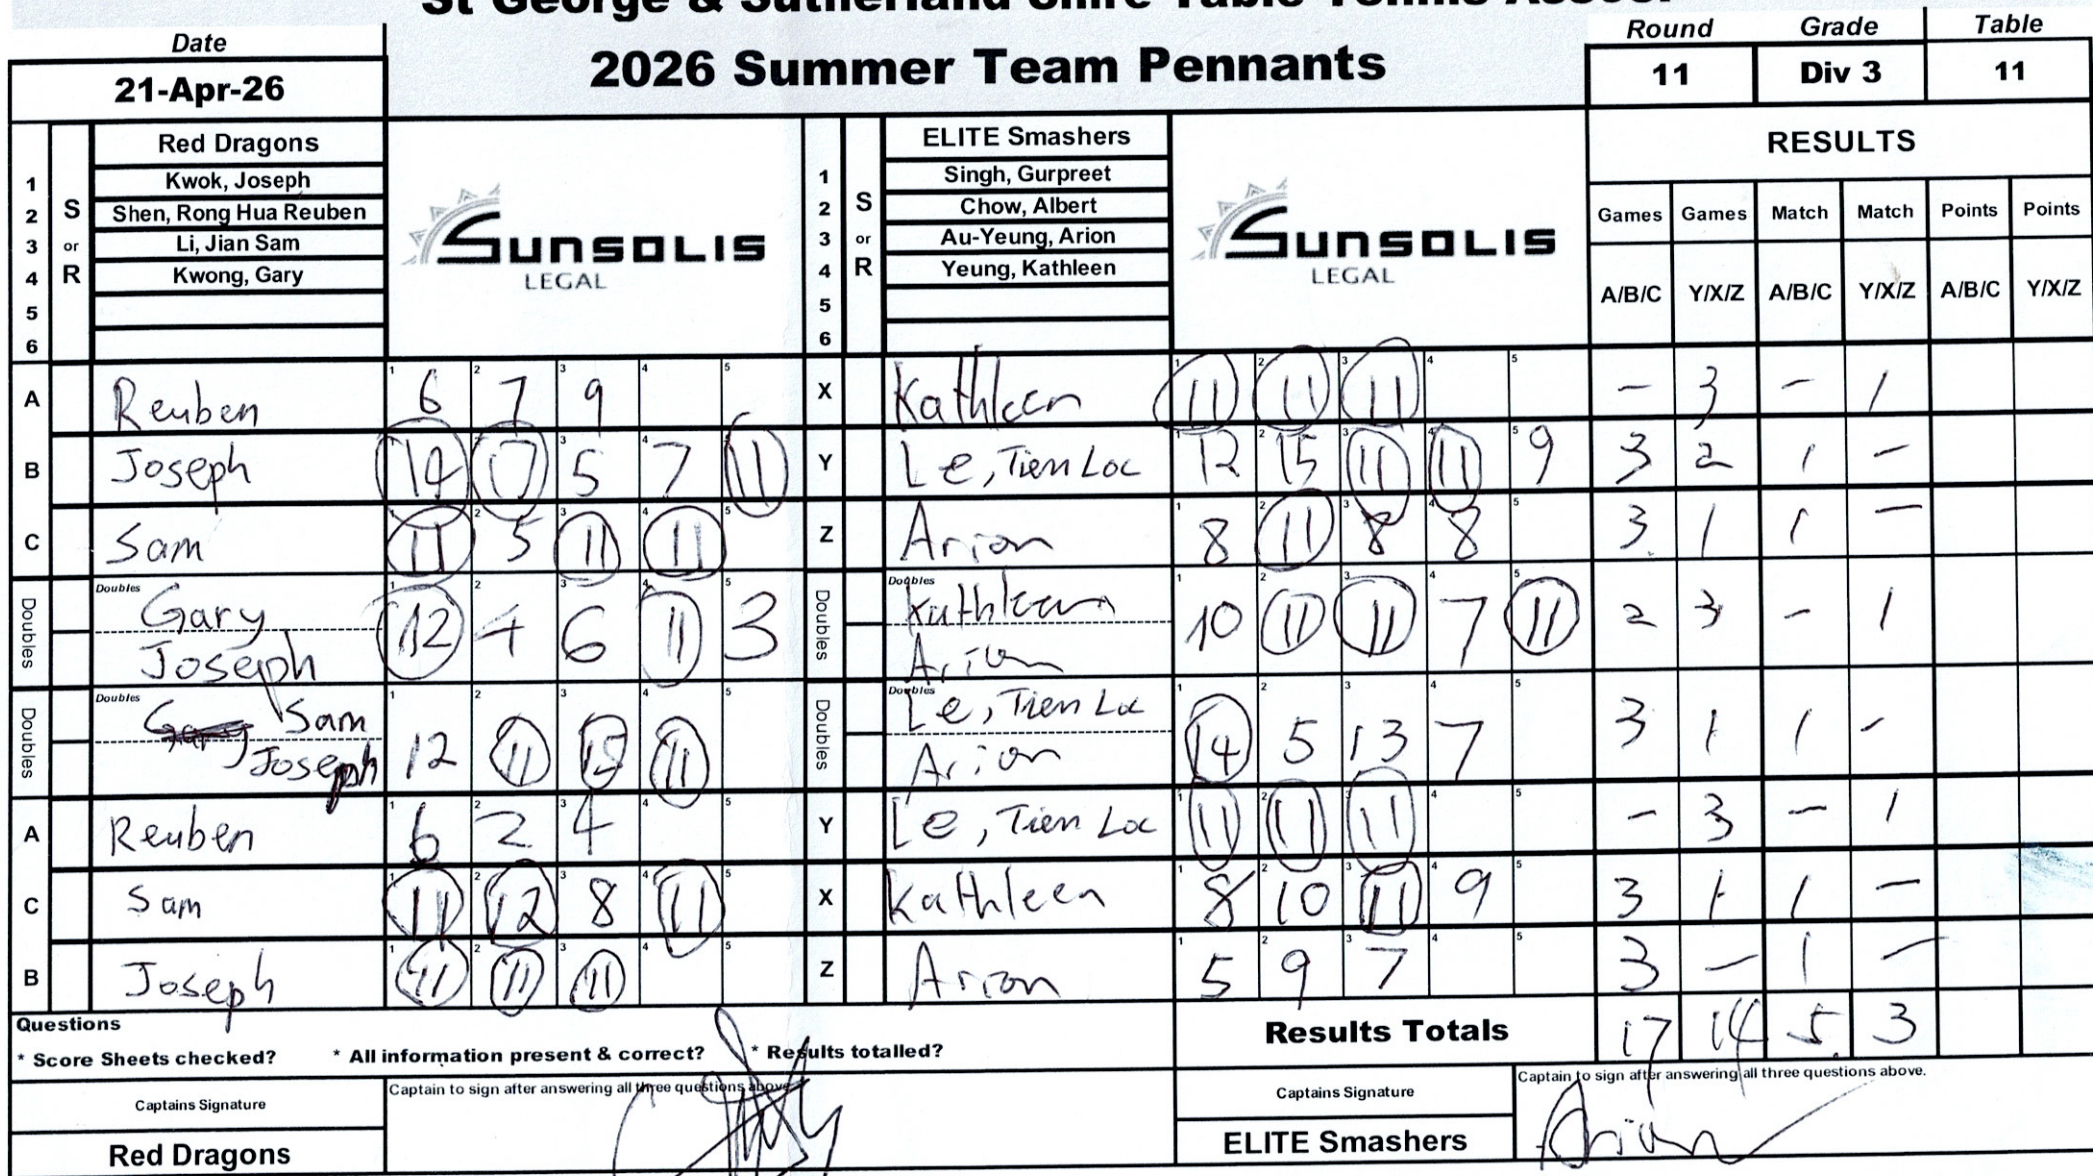 St George & Sutherland Shire Table Tennis Assoc.
2026 Summer Team Pennants
Date
21-Apr-26
Round Grade Table
11 Div 3 11
1 2 3 4 5 6
S or R
Red Dragons
Kwok, Joseph
Shen, Rong Hua Reuben
Li, Jian Sam
Kwong, Gary
SUNSOLIS
LEGAL
1 2 3 4 5 6
S or R
ELITE Smashers
Singh, Gurpreet
Chow, Albert
Au-Yeung, Arion
Yeung, Kathleen
SUNSOLIS
LEGAL
RESULTS
Games Games Match Match Points Points
A/B/C Y/X/Z A/B/C Y/X/Z A/B/C Y/X/Z
A Reuben 6 7 9 X Kathleen 11 11 11 - 3 - 1
B Joseph 14 17 5 7 11 Y Le, Tien Loc 12 15 11 11 9 3 2 1 -
C Sam 11 5 11 11 Z Arion 8 11 8 8 3 1 1 -
Doubles Gary Joseph 12 4 6 11 3 Doubles Kathleen Arion 10 11 11 7 11 2 3 - 1
Doubles Sam Joseph 12 11 15 11 Doubles Le, Tien Loc Arion 14 5 13 7 3 1 1 -
A Reuben 6 2 4 Y Le, Tien Loc 11 11 11 - 3 - 1
C Sam 11 12 8 11 X Kathleen 8 10 11 9 3 1 1 -
B Joseph 11 11 11 Z Arion 5 9 7 3 - 1 -
Questions
* Score Sheets checked? * All information present & correct? * Results totalled?
Results Totals 17 14 5 3
Captains Signature
Captain to sign after answering all three questions above.
Red Dragons
Captains Signature
Captain to sign after answering all three questions above.
ELITE Smashers
Arion